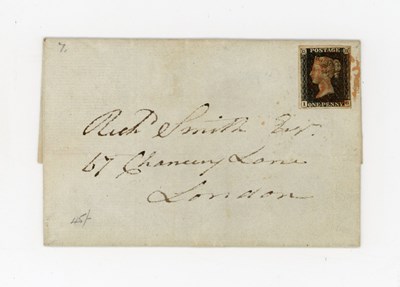 POSTAGE
ONE PENNY
Richd Smith Esqr.
67 Chancery Lane
London
45/-